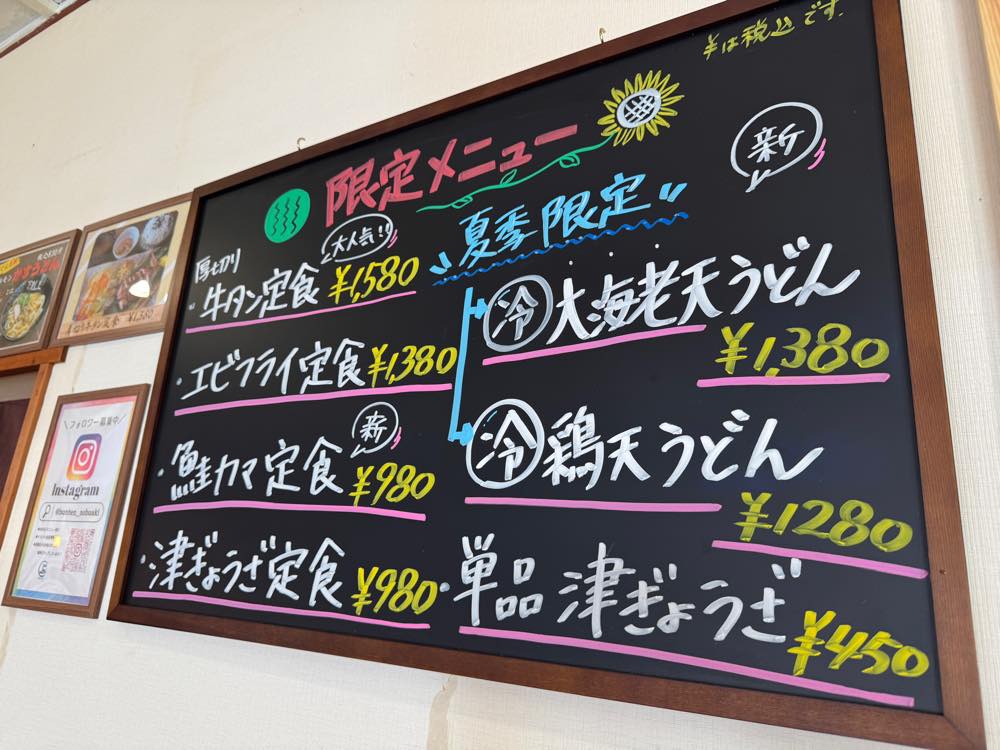 ¥は税込です.
限定メニュー
新
大人気!!
厚切り
・牛タン定食 ¥1,580
・エビフライ定食 ¥1,380
新
・鮭カマ定食 ¥980
・津ぎょうざ定食 ¥980
夏季限定
冷 大海老天うどん
¥1,380
冷 鶏天うどん
¥1280
・単品 津ぎょうざ
¥450
かすうどん
\フォロワー募集中/
Instagram